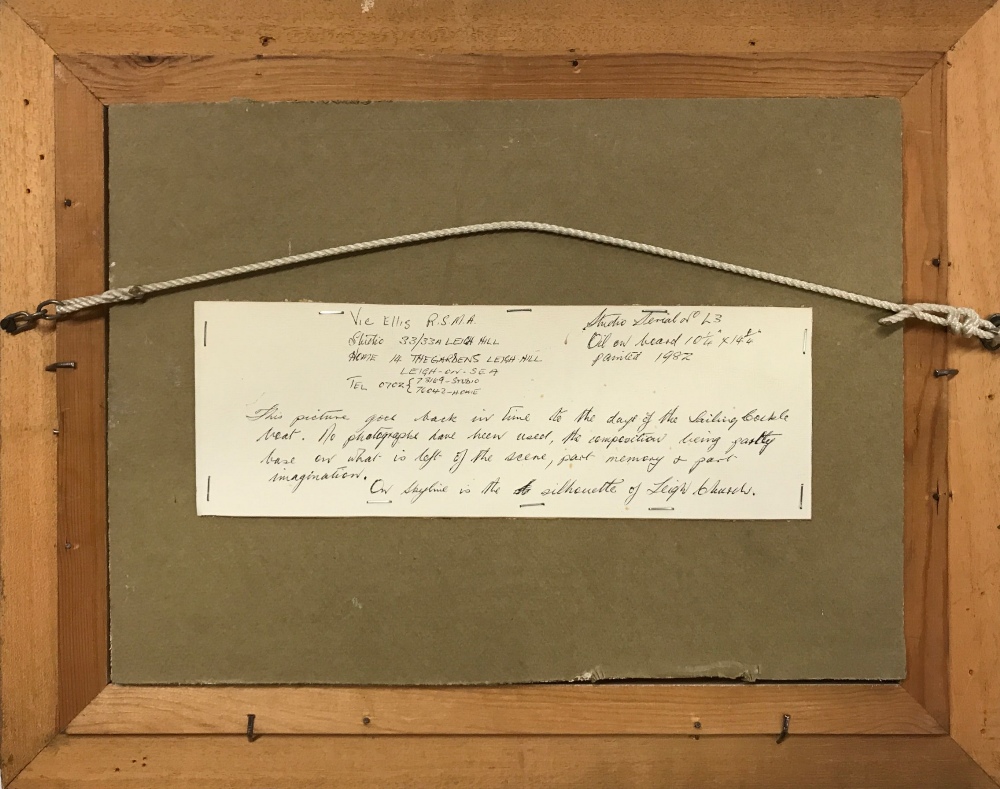 Vic Ellis R.S.M.A.
Studio 33/33A LEIGH HILL
HOME 14 THE GARDENS LEIGH HILL
LEIGH-ON-SEA
TEL 0702 { 78169-STUDIO
76042-HOME
Studio Serial No L3
Oil on board 10¼" x 14¼"
painted 1982
This picture goes back in time to the days of the Sailing Cockle
boat. No photographs have been used, the composition being partly
base on what is left of the scene, part memory & part
imagination.
On Skyline is the silhouette of Leigh Church.